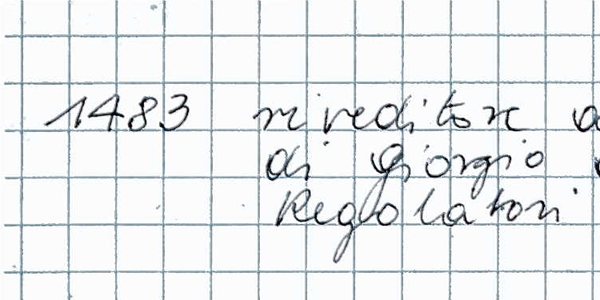 1483 riveditore a
di Giorgio
Regolatori